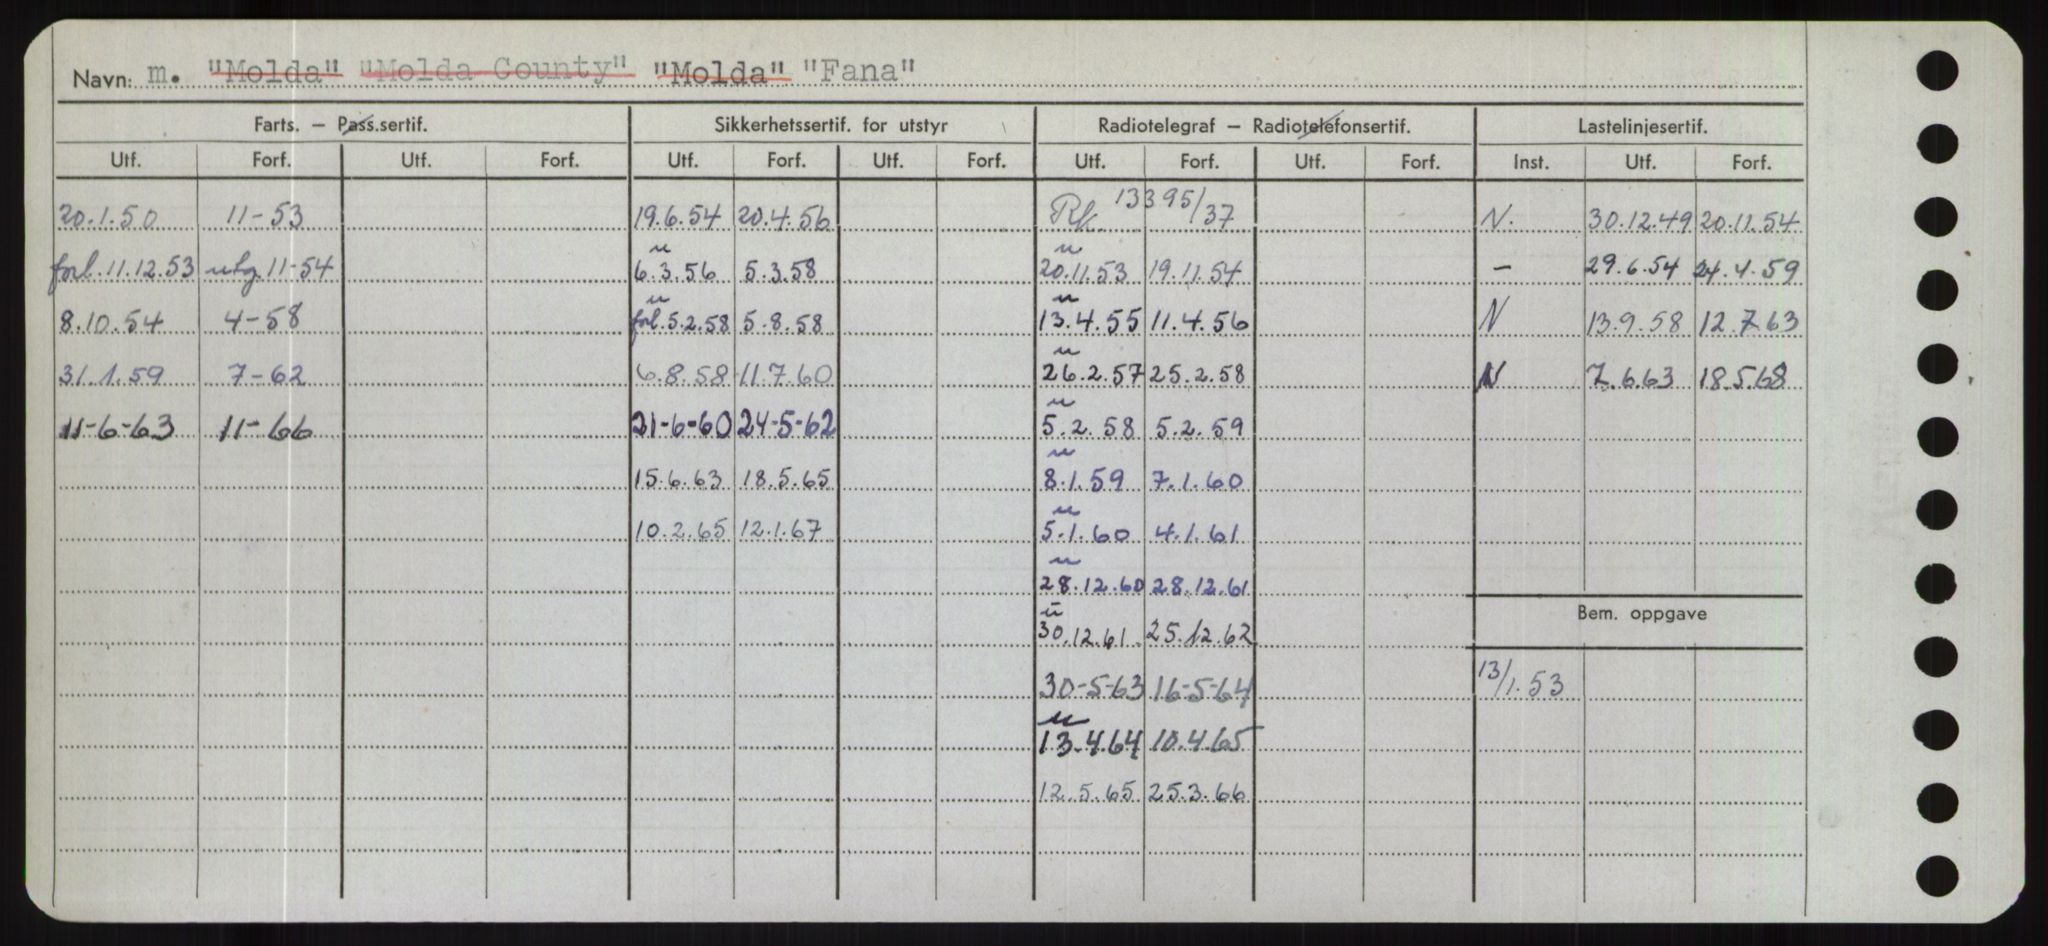 Navn: m. "Molda" "Molda County" "Molda" "Fana"
Farts. — Pass.sertif. Sikkerhetssertif. for utstyr Radiotelegraf — Radiotelefonsertif. Lastelinjesertif.
Utf. Forf. Utf. Forf. Utf. Forf. Utf. Forf. Utf. Forf. Utf. Forf. Inst. Utf. Forf.
20.1.50 11-53 19.6.54 20.4.56 Rk. 13395/37 N. 30.12.49 20.11.54
u u
forl. 11.12.53 utg. 11-54 6.3.56 5.3.58 20.11.53 19.11.54 — 29.6.54 24.4.59
u u
8.10.54 4-58 forl. 5.2.58 5.8.58 13.4.55 11.4.56 N 13.9.58 12.7.63
u
31.1.59 7-62 6.8.58 11.7.60 26.2.57 25.2.58 N 7.6.63 18.5.68
u
11-6-63 11-66 21-6-60 24-5-62 5.2.58 5.2.59
u
15.6.63 18.5.65 8.1.59 7.1.60
u
10.2.65 12.1.67 5.1.60 4.1.61
u
28.12.60 28.12.61
Bem. oppgave
u
30.12.61 25.12.62
30-5-63 16-5-64 13/1.53
u
13.4.64 10.4.65
12.5.65 25.3.66